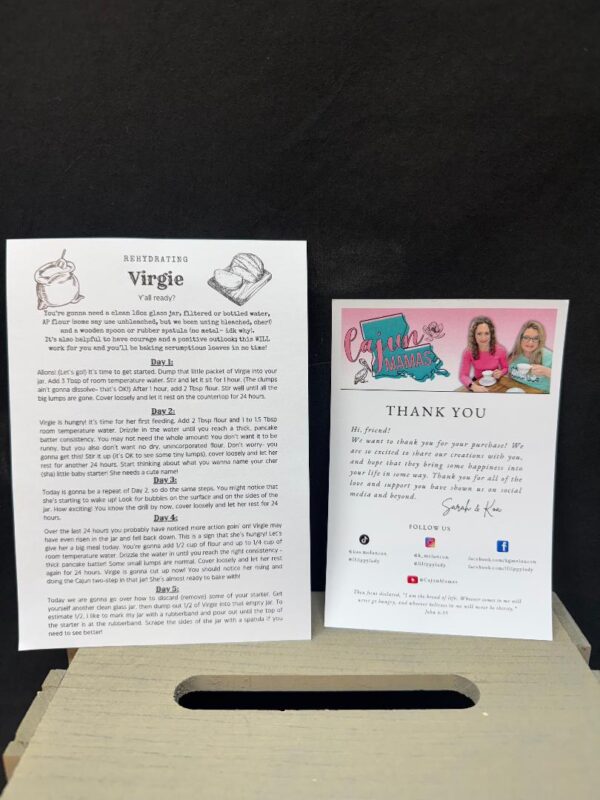 REHYDRATING
Virgie
Y'all ready?
You're gonna need a clean 16oz glass jar, filtered or bottled water,
AP flour (some say use unbleached, but we been using bleached, cher!)
and a wooden spoon or rubber spatula (no metal- idk why).
It's also helpful to have courage and a positive outlook; this WILL
work for you and you'll be baking scrumptious loaves in no time!
Day 1:
Allons! (Let's go!) It's time to get started. Dump that little packet of Virgie into your
jar. Add 3 Tbsp of room temperature water. Stir and let it sit for 1 hour. (The clumps
ain't gonna dissolve- that's OK!) After 1 hour, add 2 Tbsp flour. Stir well until all the
big lumps are gone. Cover loosely and let it rest on the countertop for 24 hours.
Day 2:
Virgie is hungry! It's time for her first feeding. Add 2 Tbsp flour and 1 to 1.5 Tbsp
room temperature water. Drizzle in the water until you reach a thick, pancake
batter consistency. You may not need the whole amount! You don't want it to be
runny, but you also don't want no dry, unincorporated flour. Don't worry- you
gonna get this! Stir it up (it's OK to see some tiny lumps), cover loosely and let her
rest for another 24 hours. Start thinking about what you wanna name your cher
(sha) little baby starter! She needs a cute name!
Day 3:
Today is gonna be a repeat of Day 2, so do the same steps. You might notice that
she's starting to wake up! Look for bubbles on the surface and on the sides of the
jar. How exciting! You know the drill by now, cover loosely and let her rest for 24
hours.
Day 4:
Over the last 24 hours you probably have noticed more action goin' on! Virgie may
have even risen in the jar and fell back down. This is a sign that she's hungry! Let's
give her a big meal today. You're gonna add 1/2 cup of flour and up to 1/4 cup of
room temperature water. Drizzle the water in until you reach the right consistency -
thick pancake batter! Some small lumps are normal. Cover loosely and let her rest
again for 24 hours. Virgie is gonna cut up now! You should notice her rising and
doing the Cajun two-step in that jar! She's almost ready to bake with!
Day 5:
Today we are gonna go over how to discard (remove) some of your starter. Get
yourself another clean glass jar, then dump out 1/2 of Virgie into that empty jar. To
estimate 1/2, I like to mark my jar with a rubberband and pour out until the top of
the starter is at the rubberband. Scrape the sides of the jar with a spatula if you
need to see better!
Cajun
MAMAS
THANK YOU
Hi, friend!
We want to thank you for your purchase! We
are so excited to share our creations with you,
and hope that they bring some happiness into
your life in some way. Thank you for all of the
love and support you have shown us on social
media and beyond.
Sarah &
FOLLOW US
@lilippylady
@CajunMamas
Then Jesus declared, "I am the bread of life. Whoever comes to me will
never go hungry, and whoever believes in me will never be thirsty."
John 6:35